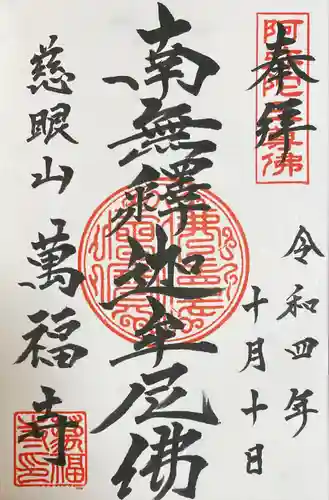 奉拝
令和四年
十月十日
南無釋迦牟尼佛
慈眼山
萬福寺